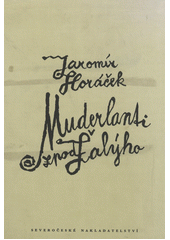 Jaromír
Horáček
Muderlanti
zpod Žalýho
SEVEROČESKÉ NAKLADATELSTVÍ